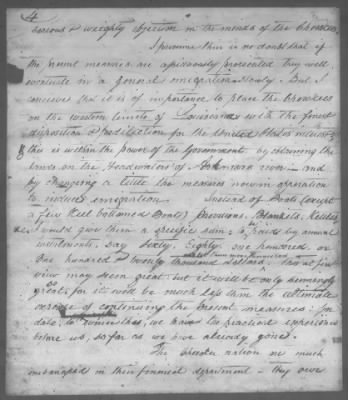 4
serious & weighty objection in the minds of the Cherokees.
I presume there is no doubt that if
the present measures are assiduously prosecuted they will
eventuate in a general emigration slowly. But I
conceive that it is of importance to place the Cherokees
on the western limits of Louisiana with the finest
disposition & predilection for the United States measures
this is within the power of the Government by obtaining the
lands on the Headwaters of Arkansas river — and
by changing a little the measures now in operation
to induce emigration. Instead of Boats (except
a few Keel bottomed Boats) Provisions, Blankets, Kettles
&c I would give them a specific sum to be paid by annual
instalments, say Sixty, Eighty, one hundred, or
One hundred & twenty thousand dollars. This at first
view may seem great but it will be only seemingly
so great for it will be much less than the ultimate
expense of continuing the present measures: for
data, to prove this, we have the practical experience
before us, so far as we have already gone.
The Cherokee nation are much
embarrassed in their financial department — they owe